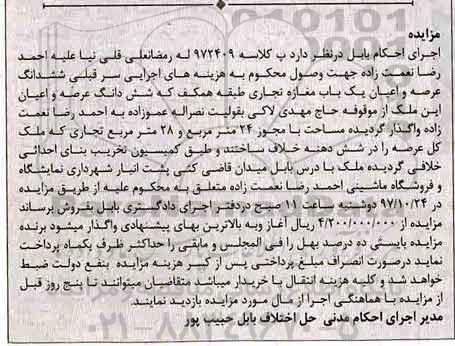 مزایده
اجرای احکام بابل درنظر دارد پ کلاسه ۹۷۲۴۰۹ له رمضانعلی قلی نیا علیه احمد
رضا نعمت زاده جهت وصول محکوم به هزینه های اجرایی سر قبلی ششدانگ
عرصه و اعیان یک باب مغازه تجاری طبقه همکف که شش دانگ عرصه و اعیان
این ملک از موقوفه حاج مهدی لاکی بقولیت نصراله عموزاده به احمد رضا نعمت
زاده واگذار گردیده مساحت با مجوز ۲۴ متر مربع و ۲۸ متر مربع تجاری که ملک
کل عرصه را در شش دهنه خلاف ساختند و طبق کمیسیون تخریب بنای احداثی
خلافی گردیده ملک با درس بابل میدان قاضی کتی پشت انبار شهرداری نمایشگاه
و فروشگاه ماشینی احمد رضا نعمت زاده متعلق به محکوم علیه از طریق مزایده
در ۹۷/۱۰/۲۴ دوشنبه ساعت ۱۱ صبح دردفتر اجرای دادگستری بابل بفروش برساند
مزایده از ۴/۲۰۰/۰۰۰/۰۰۰ ریال آغاز وبه بالاترین بهای پیشنهادی واگذار میشود برنده
مزایده بایستی ده درصد بهل را فی المجلس و مابقی را حداکثر ظرف یکماه پرداخت
نماید درصورت انصراف مبلغ پرداختی پس از کسر هزینه مزایده بنفع دولت ضبط
خواهد شد و کلیه هزینه انتقال با خریدار میباشد متقاضیان میتوانند تا پنج روز قبل
از مزایده با هماهنگی اجرا از مال مورد مزایده بازدید نمایند.
مدیر اجرای احکام مدنی حل اختلاف بابل حبیب پور